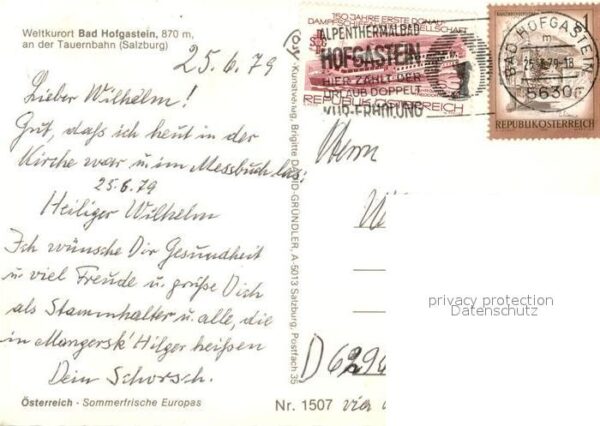 Weltkurort Bad Hofgastein, 870 m,
an der Tauernbahn (Salzburg)
25.6.79
Lieber Wilhelm!
Gut, daß ich heut in der
Kirche war u. im Messbuch las:
25.6.79
Heiliger Wilhelm
Ich wünsche Dir Gesundheit
u. viel Freude u. grüße Dich
als Stammhalter u. alle, die
in Mangersk' Hilger heißen
Dein Schorsch.
Österreich - Sommerfrische Europas
Nr. 1507
Kunstverlag, Brigitte DAVID-GRÜNDLER, A-5013 Salzburg, Postfach 35
150 JAHRE ERSTE DONAU
DAMPFSCHIFFAHRTS GESELLSCHAFT
REPUBLIK ÖSTERREICH
ALPENTHERMALBAD
HOFGASTEIN
HIER ZÄHLT DER
URLAUB DOPPELT
KUR-ERHOLUNG
1
REPUBLIK ÖSTERREICH
BAD HOFGASTEIN
79-18
5630
Herrn
D 6294
privacy protection
Datenschutz